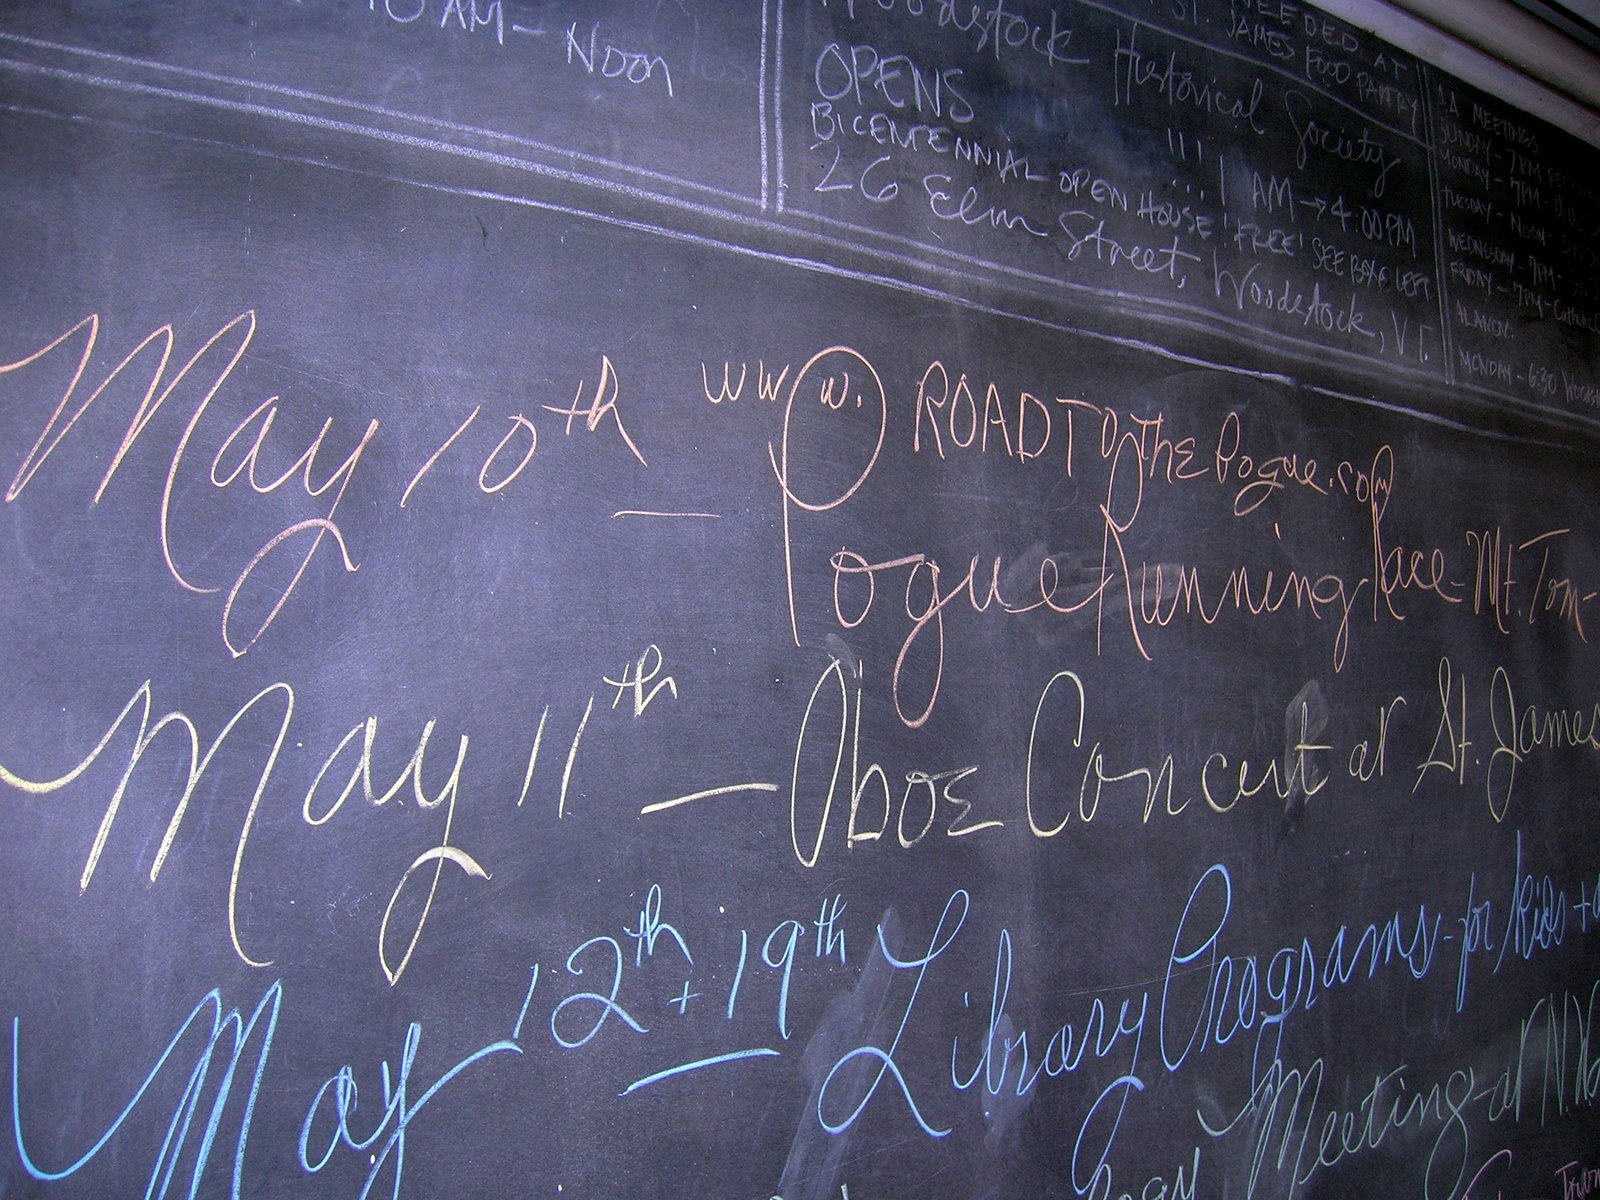 10 AM – Noon
Woodstock Historical Society
OPENS !!! 11 AM → 4:00 PM
BICENTENNIAL OPEN HOUSE! FREE! SEE BOX @ LEFT
26 Elm Street, Woodstock, VT.
NEEDED AT
ST. JAMES FOOD PANTRY
AA MEETINGS
SUNDAY – 7 PM
MONDAY – 7PM –
TUESDAY – NOON –
WEDNESDAY – 7PM –
FRIDAY – 7PM – Catholic
ALANON:
MONDAY – 6:30
May 10th — www.ROADTOthePogue.com
Pogue Running Race – Mt. Tom –
May 11th — Oboe Concert at St. James
May 12th + 19th — Library Programs – for kids +
Meeting – at N.